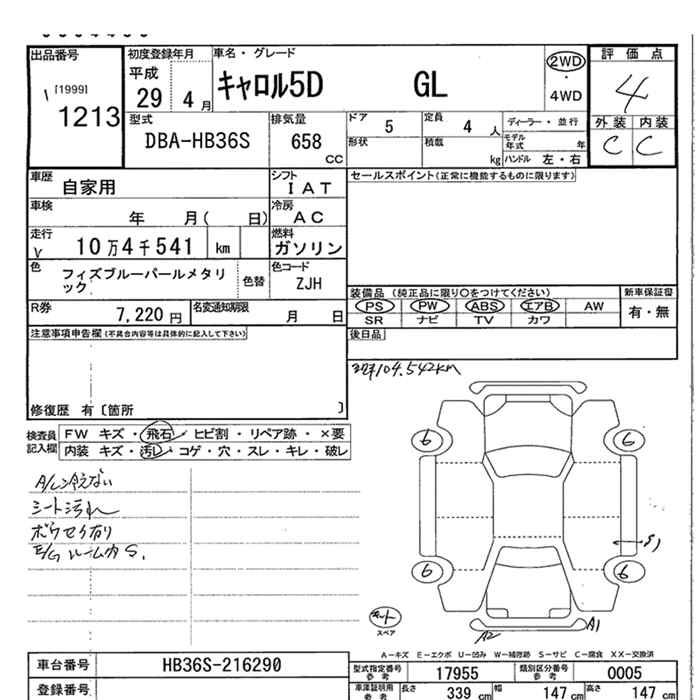 出品番号 初度登録年月 車名・グレード 評価点
[1999] 平成 キャロル5D GL 2WD 4
1213 29 4月 4WD
外装 内装
C C
型式 排気量 ドア 5 定員 4人 ディーラー・並行
DBA-HB36S 658 CC 形状 積載 kg モデル年式 年
ハンドル 左・右
車歴 自家用 シフト IAT セールスポイント(正常に機能するものに限ります)
車検 年 月( 日) 冷房 AC
走行 10万4千541 km 燃料 ガソリン
色 フィズブルーパールメタリック 色替 色コード ZJH
装備品 (純正品に限り○をつけてください) 新車保証書
PS PW ABS エアB AW 有・無
SR ナビ TV カワ
R券 7,220円 名変通知期限 月 日
注意事項申告欄(不具合内容等は具体的に記入して下さい) 後日品
104.542km
修復歴 有〔箇所 〕
検査員記入欄 FW キズ・飛石・ヒビ割・リペア跡・×要
内装 キズ・汚レ・コゲ・穴・スレ・キレ・破レ
A/C冷えない
シート汚れ
6 6
S1
6 6
スペア
A2 A1
A-キズ E-エクボ U-凹み W-補修跡 S-サビ C-腐食 XX-交換済
車台番号 HB36S-216290 型式指定番号 参考 17955 類別区分番号 参考 0005
登録番号 車庫証明用 参考 長さ 339 cm 幅 147 cm 高さ 147 cm